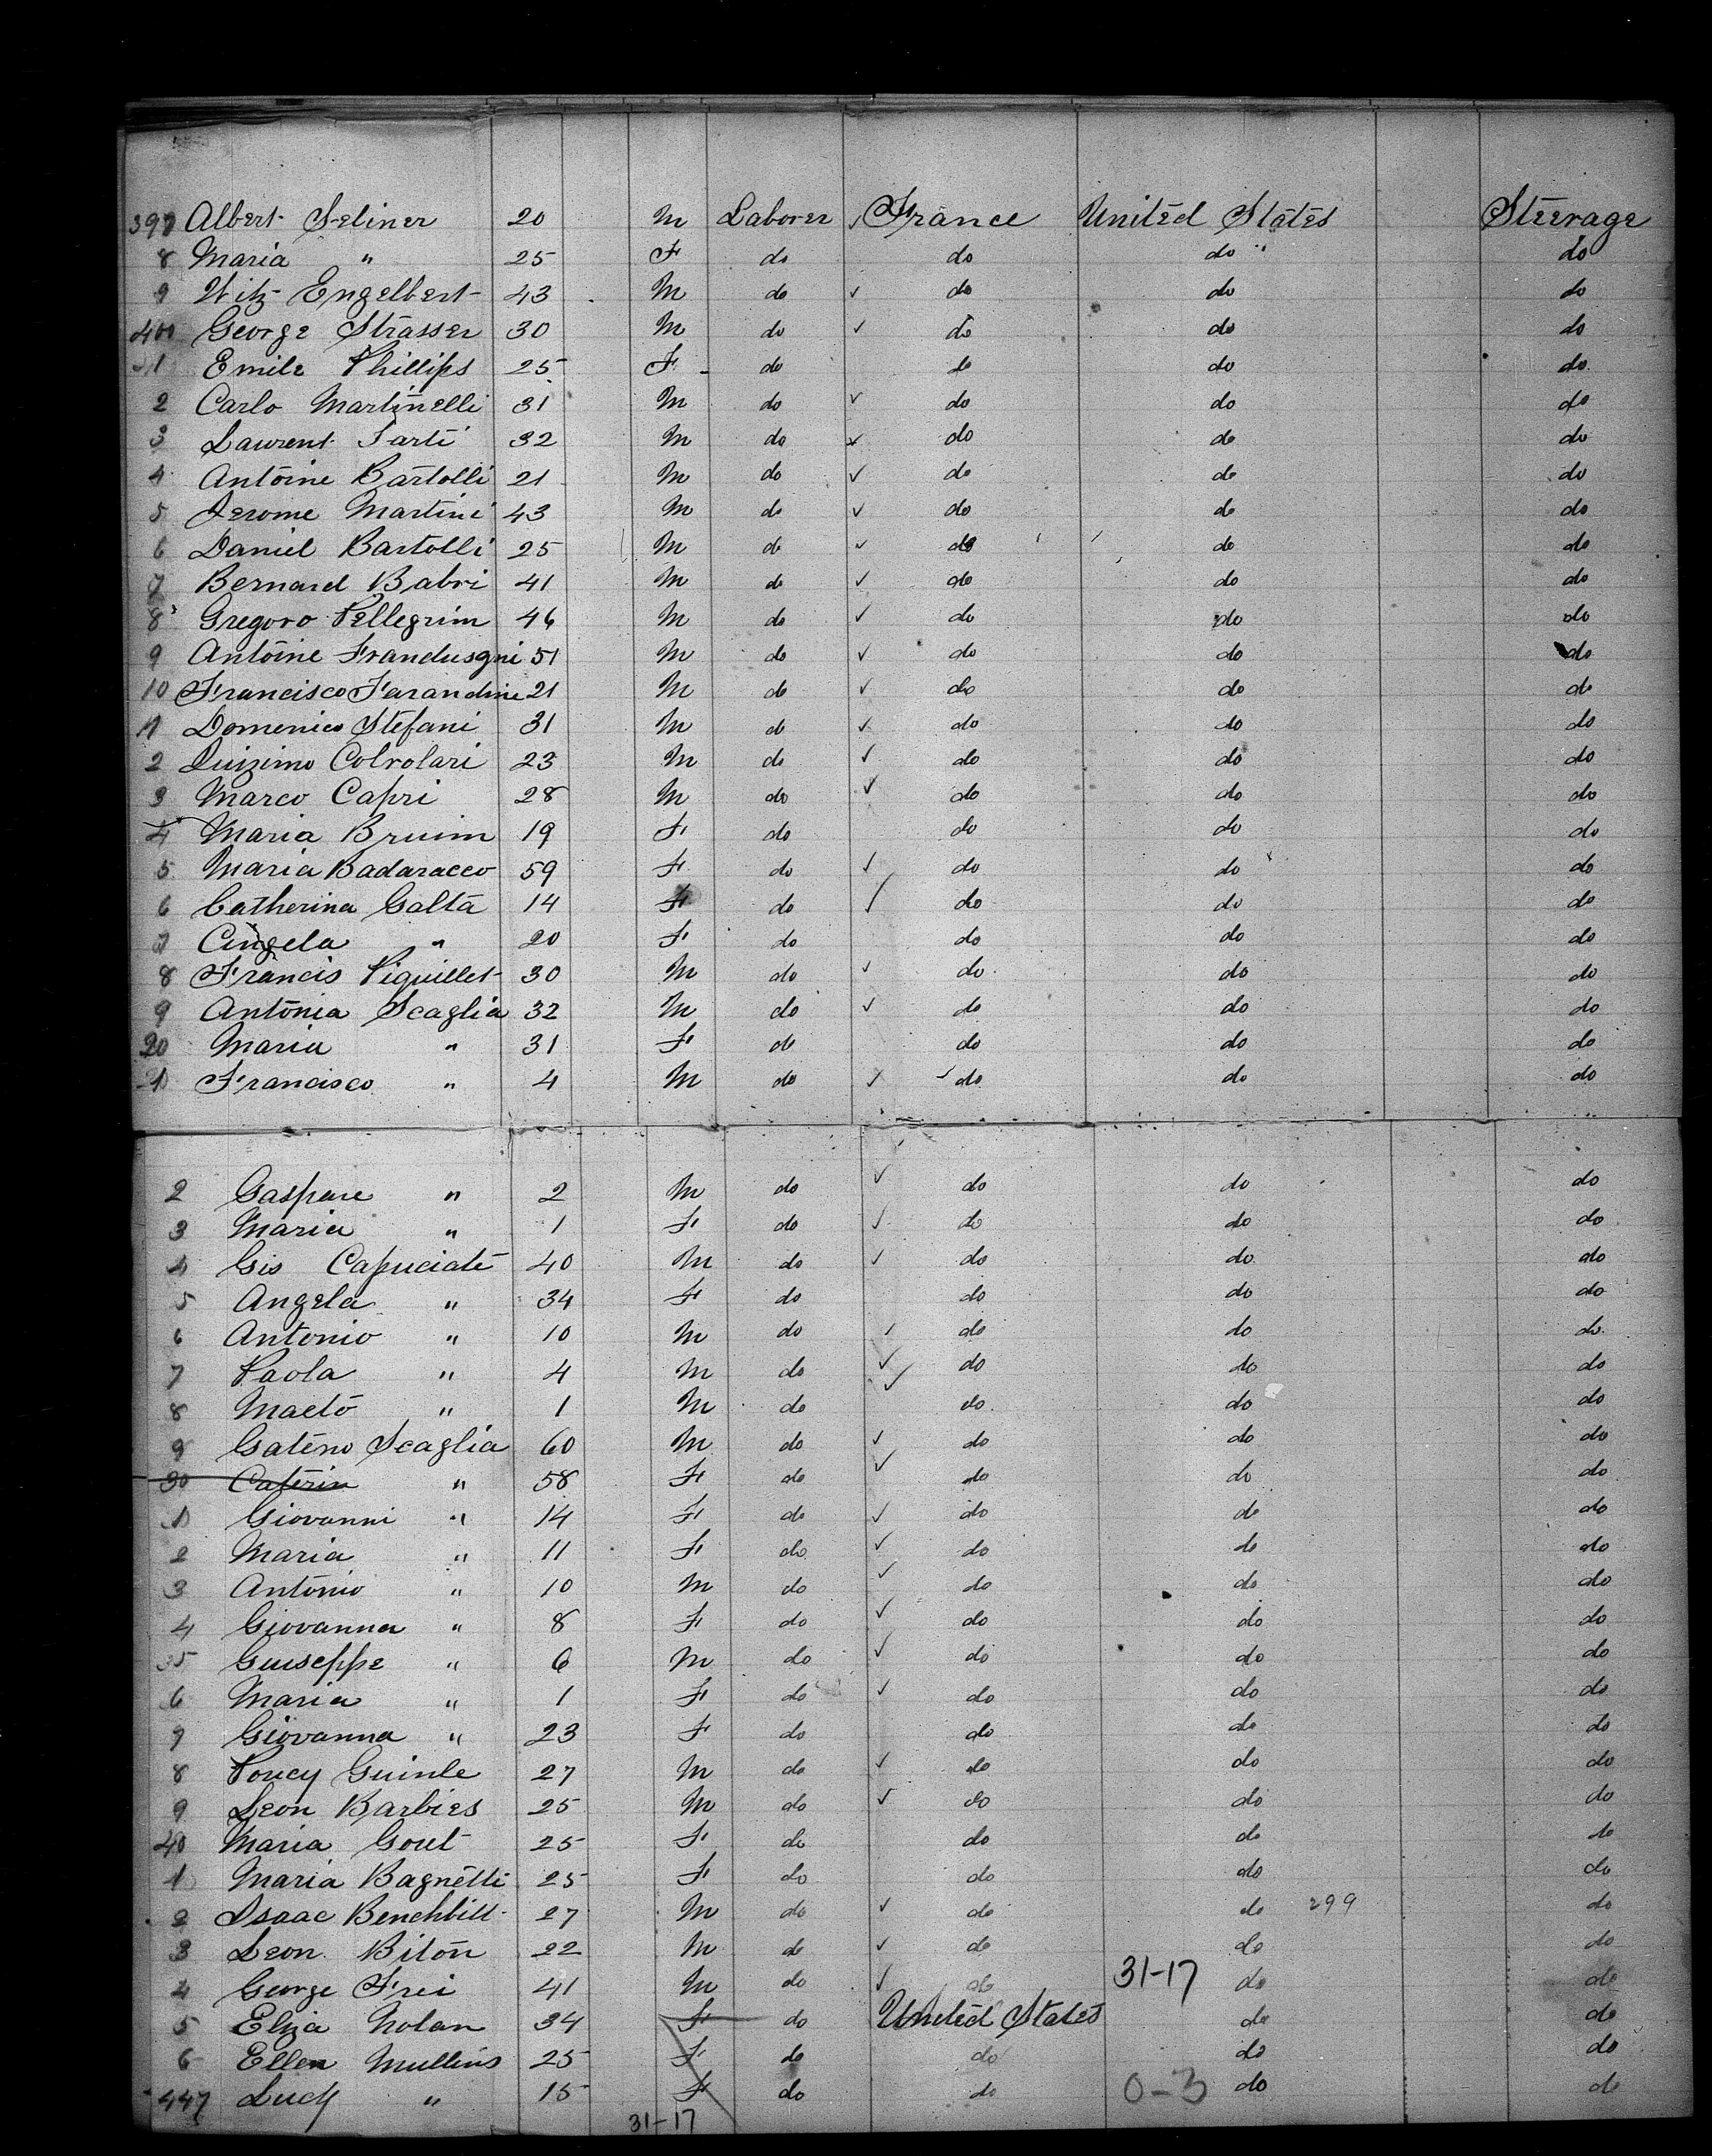 397 Albert Seliner 20 M Laborer ✓ France United States Steerage
8 Maria " 25 F do do do " do
9 Witz Engelbert 43 M do ✓ do do do
400 George Strasser 30 M do ✓ do do do
1 Emile Phillips 25 F do do do do
2 Carlo Martinelli 31 M do ✓ do do do
3 Laurent Tarti 32 M do ✓ do do do
4 Antoine Bartolli 21 M do ✓ do do do
5 Jerome Martini 43 M do ✓ do do do
6 Daniel Bartolli 25 M do ✓ do do do
7 Bernard Babri 41 M do ✓ do do do
8 Gregoro Pellegrim 46 M do ✓ do do do
9 Antoine Frandusgni 51 M do ✓ do do do
10 Francisco Farandine 21 M do ✓ do do do
1 Domenico Stefani 31 M do ✓ do do do
2 Colrolari 23 M do ✓ do do do
3 Marco Capri 28 M do ✓ do do do
4 Maria Bruim 19 F do do do do
5 Maria Badaracco 59 F do ✓ do do do
6 Catherina Galta 14 F do ✓ do do do
7 Angela " 20 F do do do do
8 Francis Piquillet 30 M do ✓ do do do
9 Antonia Scaglia 32 M do ✓ do do do
20 Maria " 31 F do do do do
1 Francisco " 4 M do ✓ do do do
2 Gaspare " 2 M do ✓ do do do
3 Maria " 1 F do ✓ do do do
4 Gis Capuciate 40 M do ✓ do do do
5 Angela " 34 F do do do do
6 Antonio " 10 M do ✓ do do do
7 Paola " 4 M do ✓ do do do
8 Maeto " 1 M do ✓ do do do
9 Gateno Scaglia 60 M do ✓ do do do
30 Caterin " 58 F do ✓ do do do
1 Giovanni " 14 F do ✓ do do do
2 Maria " 11 F do ✓ do do do
3 Antonio " 10 M do ✓ do do do
4 Giovanna " 8 F do ✓ do do do
35 Guiseppe " 6 M do ✓ do do do
6 Maria " 1 F do ✓ do do do
7 Giovanna " 23 F do do do do
8 Poucy Guinle 27 M do ✓ do do do
9 Leon Barbies 25 M do ✓ do do do
40 Maria Goret 25 F do do do do
1 Maria Bagnetti 25 F do do do do
2 Isaac Benchbill 27 M do ✓ do do 299 do
3 Leon Biton 22 M do ✓ do do do
4 George Frei 41 M do ✓ do 31-17 do do
5 Eliza Nolan 34 F do United States do do
6 Ellen Mullins 25 F do do do do
447 Lucy " 15 F do do 0-3 do do
31-17